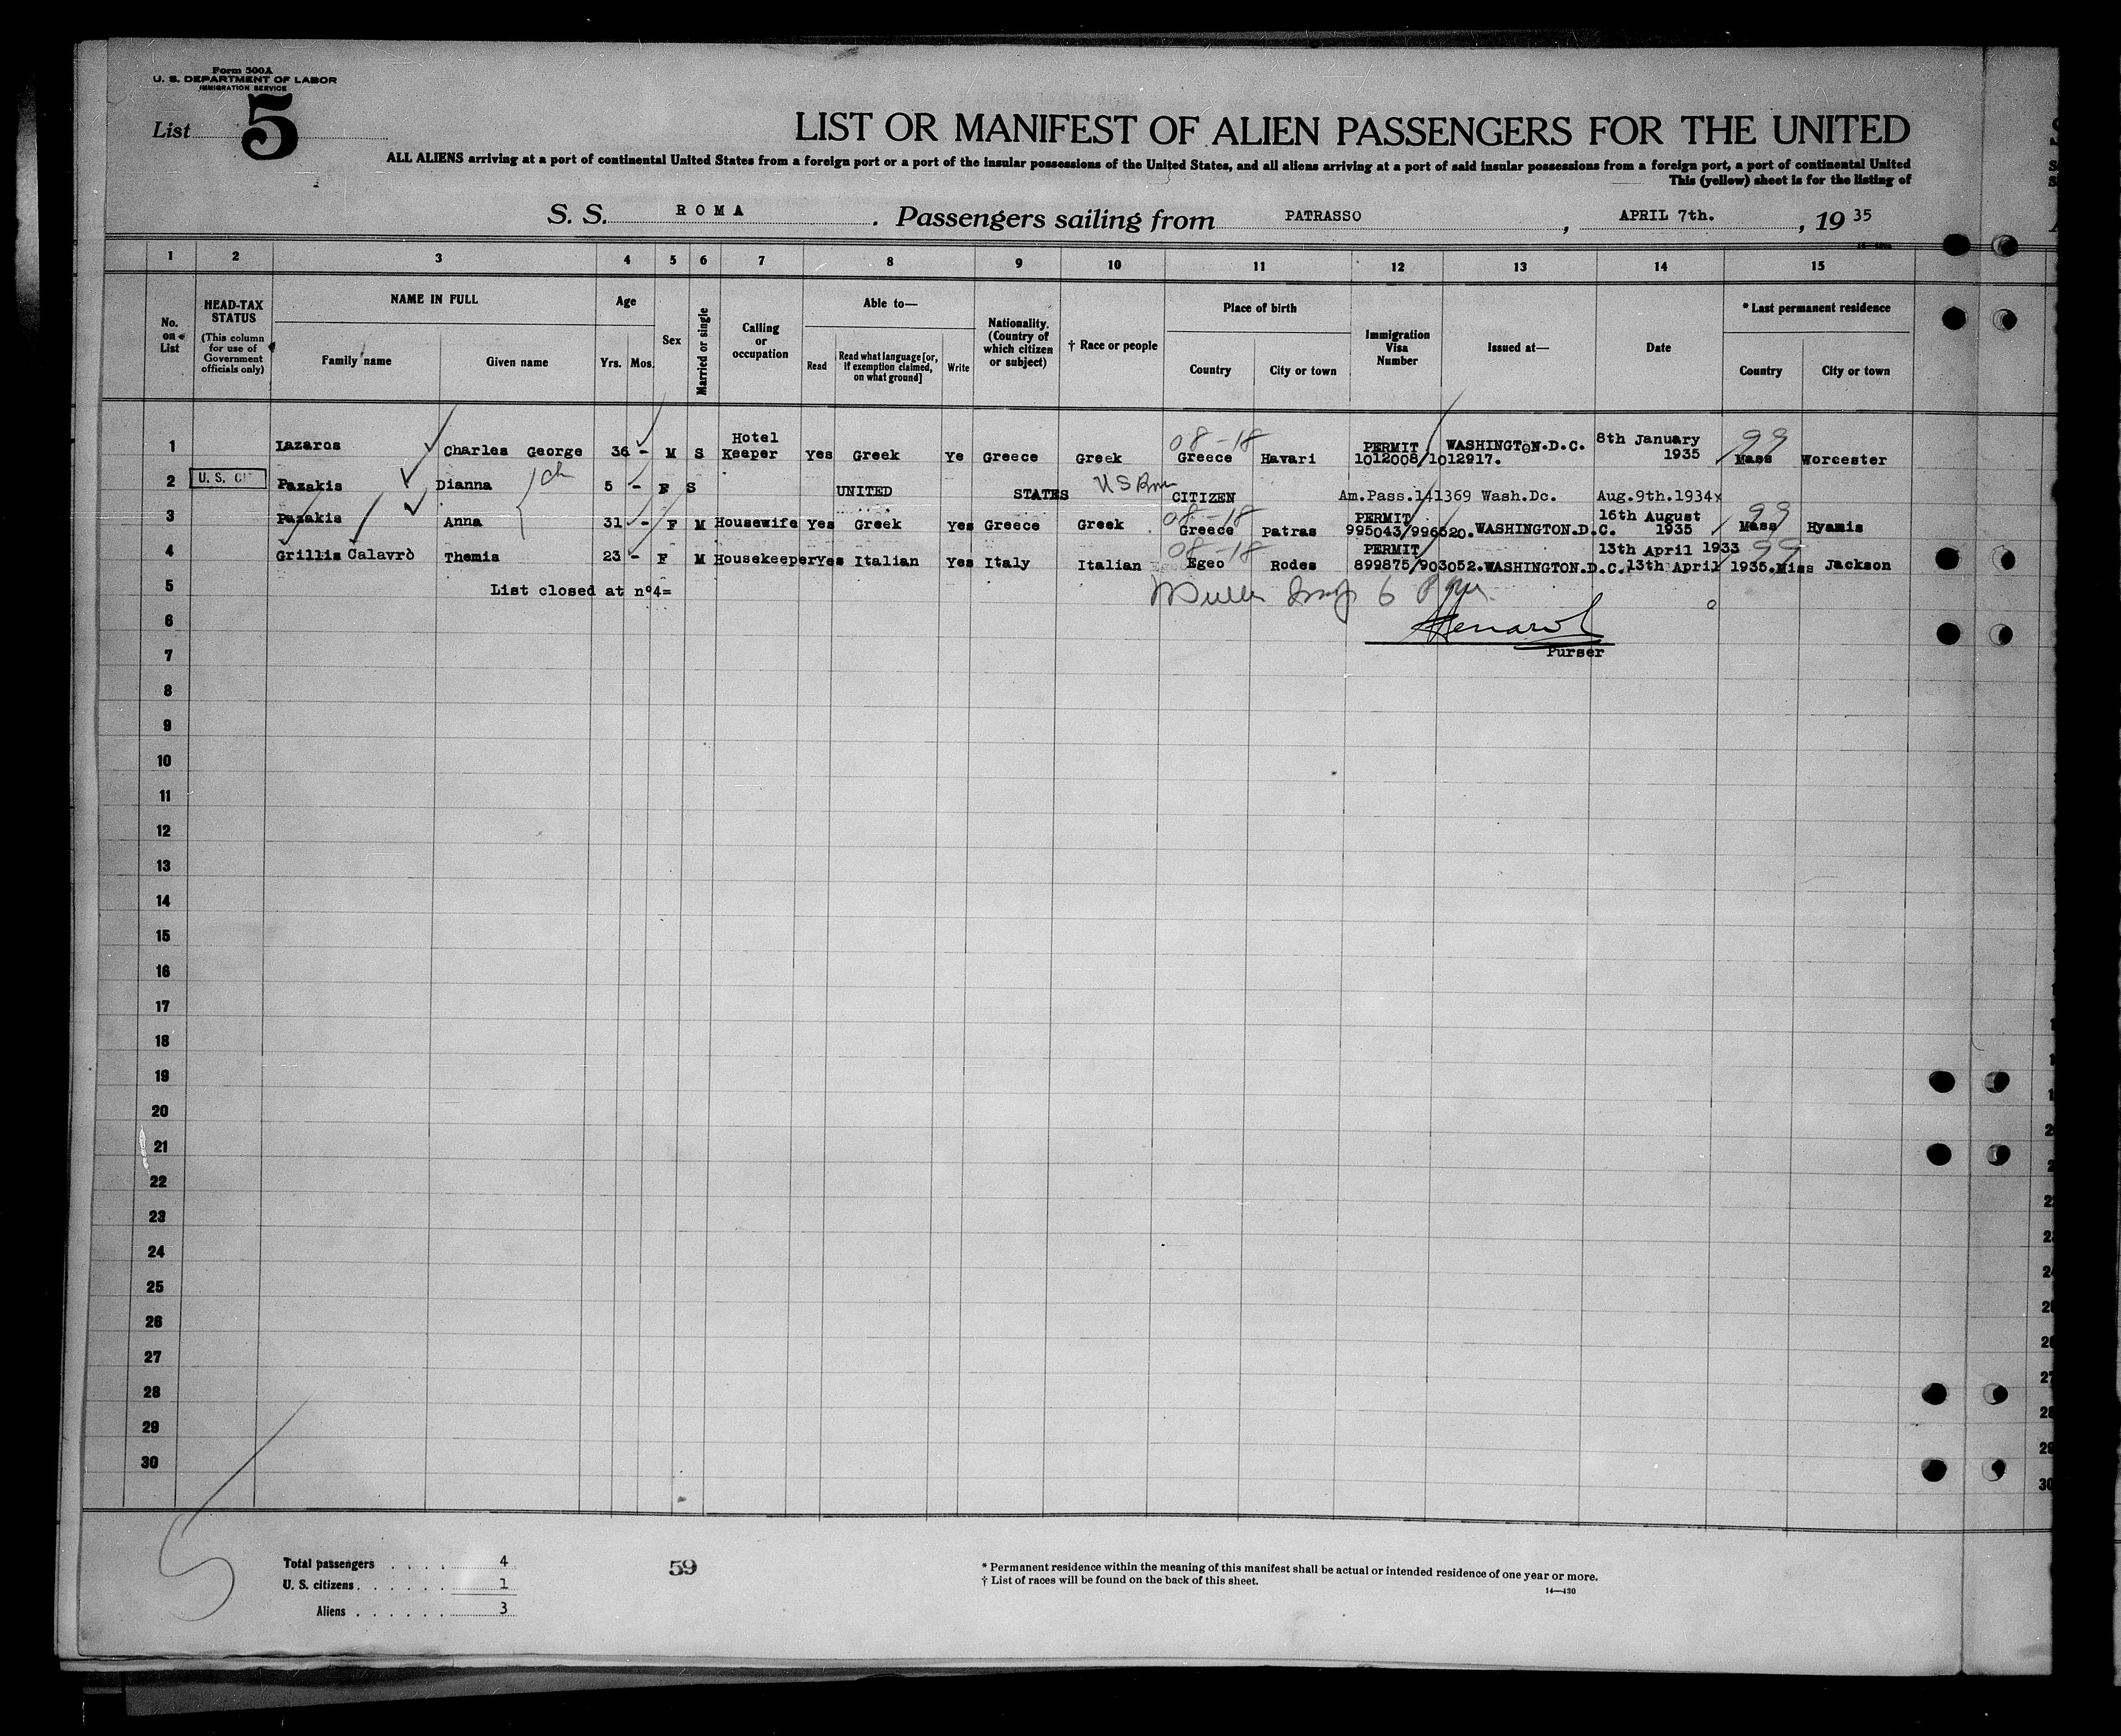 Form 500A
U. S. DEPARTMENT OF LABOR
IMMIGRATION SERVICE
List 5
LIST OR MANIFEST OF ALIEN PASSENGERS FOR THE UNITED
ALL ALIENS arriving at a port of continental United States from a foreign port or a port of the insular possessions of the United States, and all aliens arriving at a port of said insular possessions from a foreign port, a port of continental United
This (yellow) sheet is for the listing of
S. S. ROMA . Passengers sailing from PATRASSO , APRIL 7th. , 19 35
1 2 3 4 5 6 7 8 9 10 11 12 13 14 15
No. on List
HEAD-TAX STATUS
(This column for use of Government officials only)
NAME IN FULL
Family name Given name
Age
Yrs. Mos.
Sex
Married or single
Calling or occupation
Able to—
Read
Read what language [or, if exemption claimed, on what ground]
Write
Nationality. (Country of which citizen or subject)
† Race or people
Place of birth
Country City or town
Immigration Visa Number
Issued at—
Date
* Last permanent residence
Country City or town
1 Lazaros Charles George 36 - M S Hotel Keeper Yes Greek Ye Greece Greek 08-18 Greece Havari PERMIT 1012008/1012917. WASHINGTON.D.C. 8th January 1935 99 Mass Worcester
2 U. S. CI Pazakis Dianna ch 5 - F S UNITED STATES US Born CITIZEN Am.Pass.141369 Wash.Dc. Aug.9th.1934x
3 Pazakis Anna 31 - F M Housewife Yes Greek Yes Greece Greek 08-18 Greece Patras PERMIT 995043/996520. WASHINGTON.D.C. 16th August 1935 99 Mass Hyamis
4 Grillis Calavrò Themis 23 - F M Housekeeper Yes Italian Yes Italy Italian 08-18 Egeo Rodes PERMIT 899875/903052. WASHINGTON.D.C. 13th April 1933 13th April 1935. 99 Miss Jackson
5 List closed at n°4=
6
7 Purser
8
9
10
11
12
13
14
15
16
17
18
19
20
21
22
23
24
25
26
27
28
29
30
Total passengers . . . . 4
U. S. citizens . . . . . . 1
Aliens . . . . . . 3
59
* Permanent residence within the meaning of this manifest shall be actual or intended residence of one year or more.
† List of races will be found on the back of this sheet.
14—430